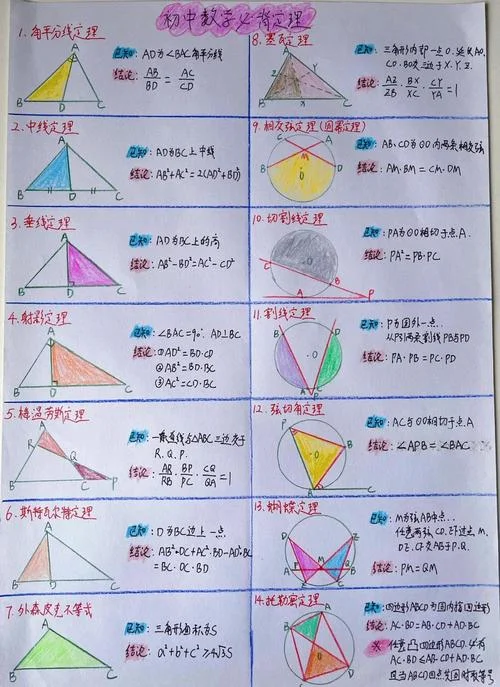 初中数学必背定理
1.角平分线定理
已知：AD为∠BAC角平分线
结论：AB/BD = AC/CD
A
B
D
C
2.中线定理
已知：AD为BC上中线
结论：AB²+AC²=2(AD²+BD²)
A
B
D
C
3.垂线定理
已知：AD为BC上的高
结论：AB²-BD²=AC²-CD²
A
B
D
C
4.射影定理
已知：∠BAC=90°. AD⊥BC
结论：①AD²=BD·CD
②AB²=BD·BC
③AC²=CD·BC
A
B
D
C
5.梅涅劳斯定理
已知：一条直线与△ABC三边交于
R. Q. P.
结论：AR/RB · BP/PC · CQ/QA =1
A
R
Q
B
C
P
6.斯特瓦尔特定理
已知：D为BC边上一点
结论：AB²·DC+AC²·BD-AD²·BC
=BC·DC·BD
A
B
D
C
7.外森皮克不等式
已知：三角形面积为S
结论：a²+b²+c²≥4√3S
A
B
C
8.塞瓦定理
已知：三角形内部一点O.延长AO.
CO.BO交三边于X.Y.Z.
结论：AZ/ZB · BX/XC · CY/YA =1
A
Z
Y
B
X
C
9.相交弦定理(圆幂定理)
已知：AB.CD为⊙O内两条相交弦
结论：AM·BM=CM·DM
C
A
M
O
D
B
10.切割线定理
已知：PA为⊙O相切于点A.
结论：PA²=PB·PC
C
O
B
A
P
11.割线定理
已知：P为圆外一点..
从P引两条割线PB与PD
结论：PA·PB=PC·PD
B
D
O
A
P
12.弦切角定理
已知：AC与⊙O相切于点A
结论：∠APB=∠BAC
P
B
O
A
C
13.蝴蝶定理
已知：M为弦AB中点..
任意两弦CD.EF过点M.
DE.CF交AB于P.Q.
结论：PM=QM
A
P
M
Q
B
14.托勒密定理
已知：四边形ABCD为圆内接四边形
结论：AC·BD=AB·CD+AD·BC
※ 任意凸四边形ABCD.必有
AC·BD≤AB·CD+AD·BC
且当ABCD四点共圆时取等号